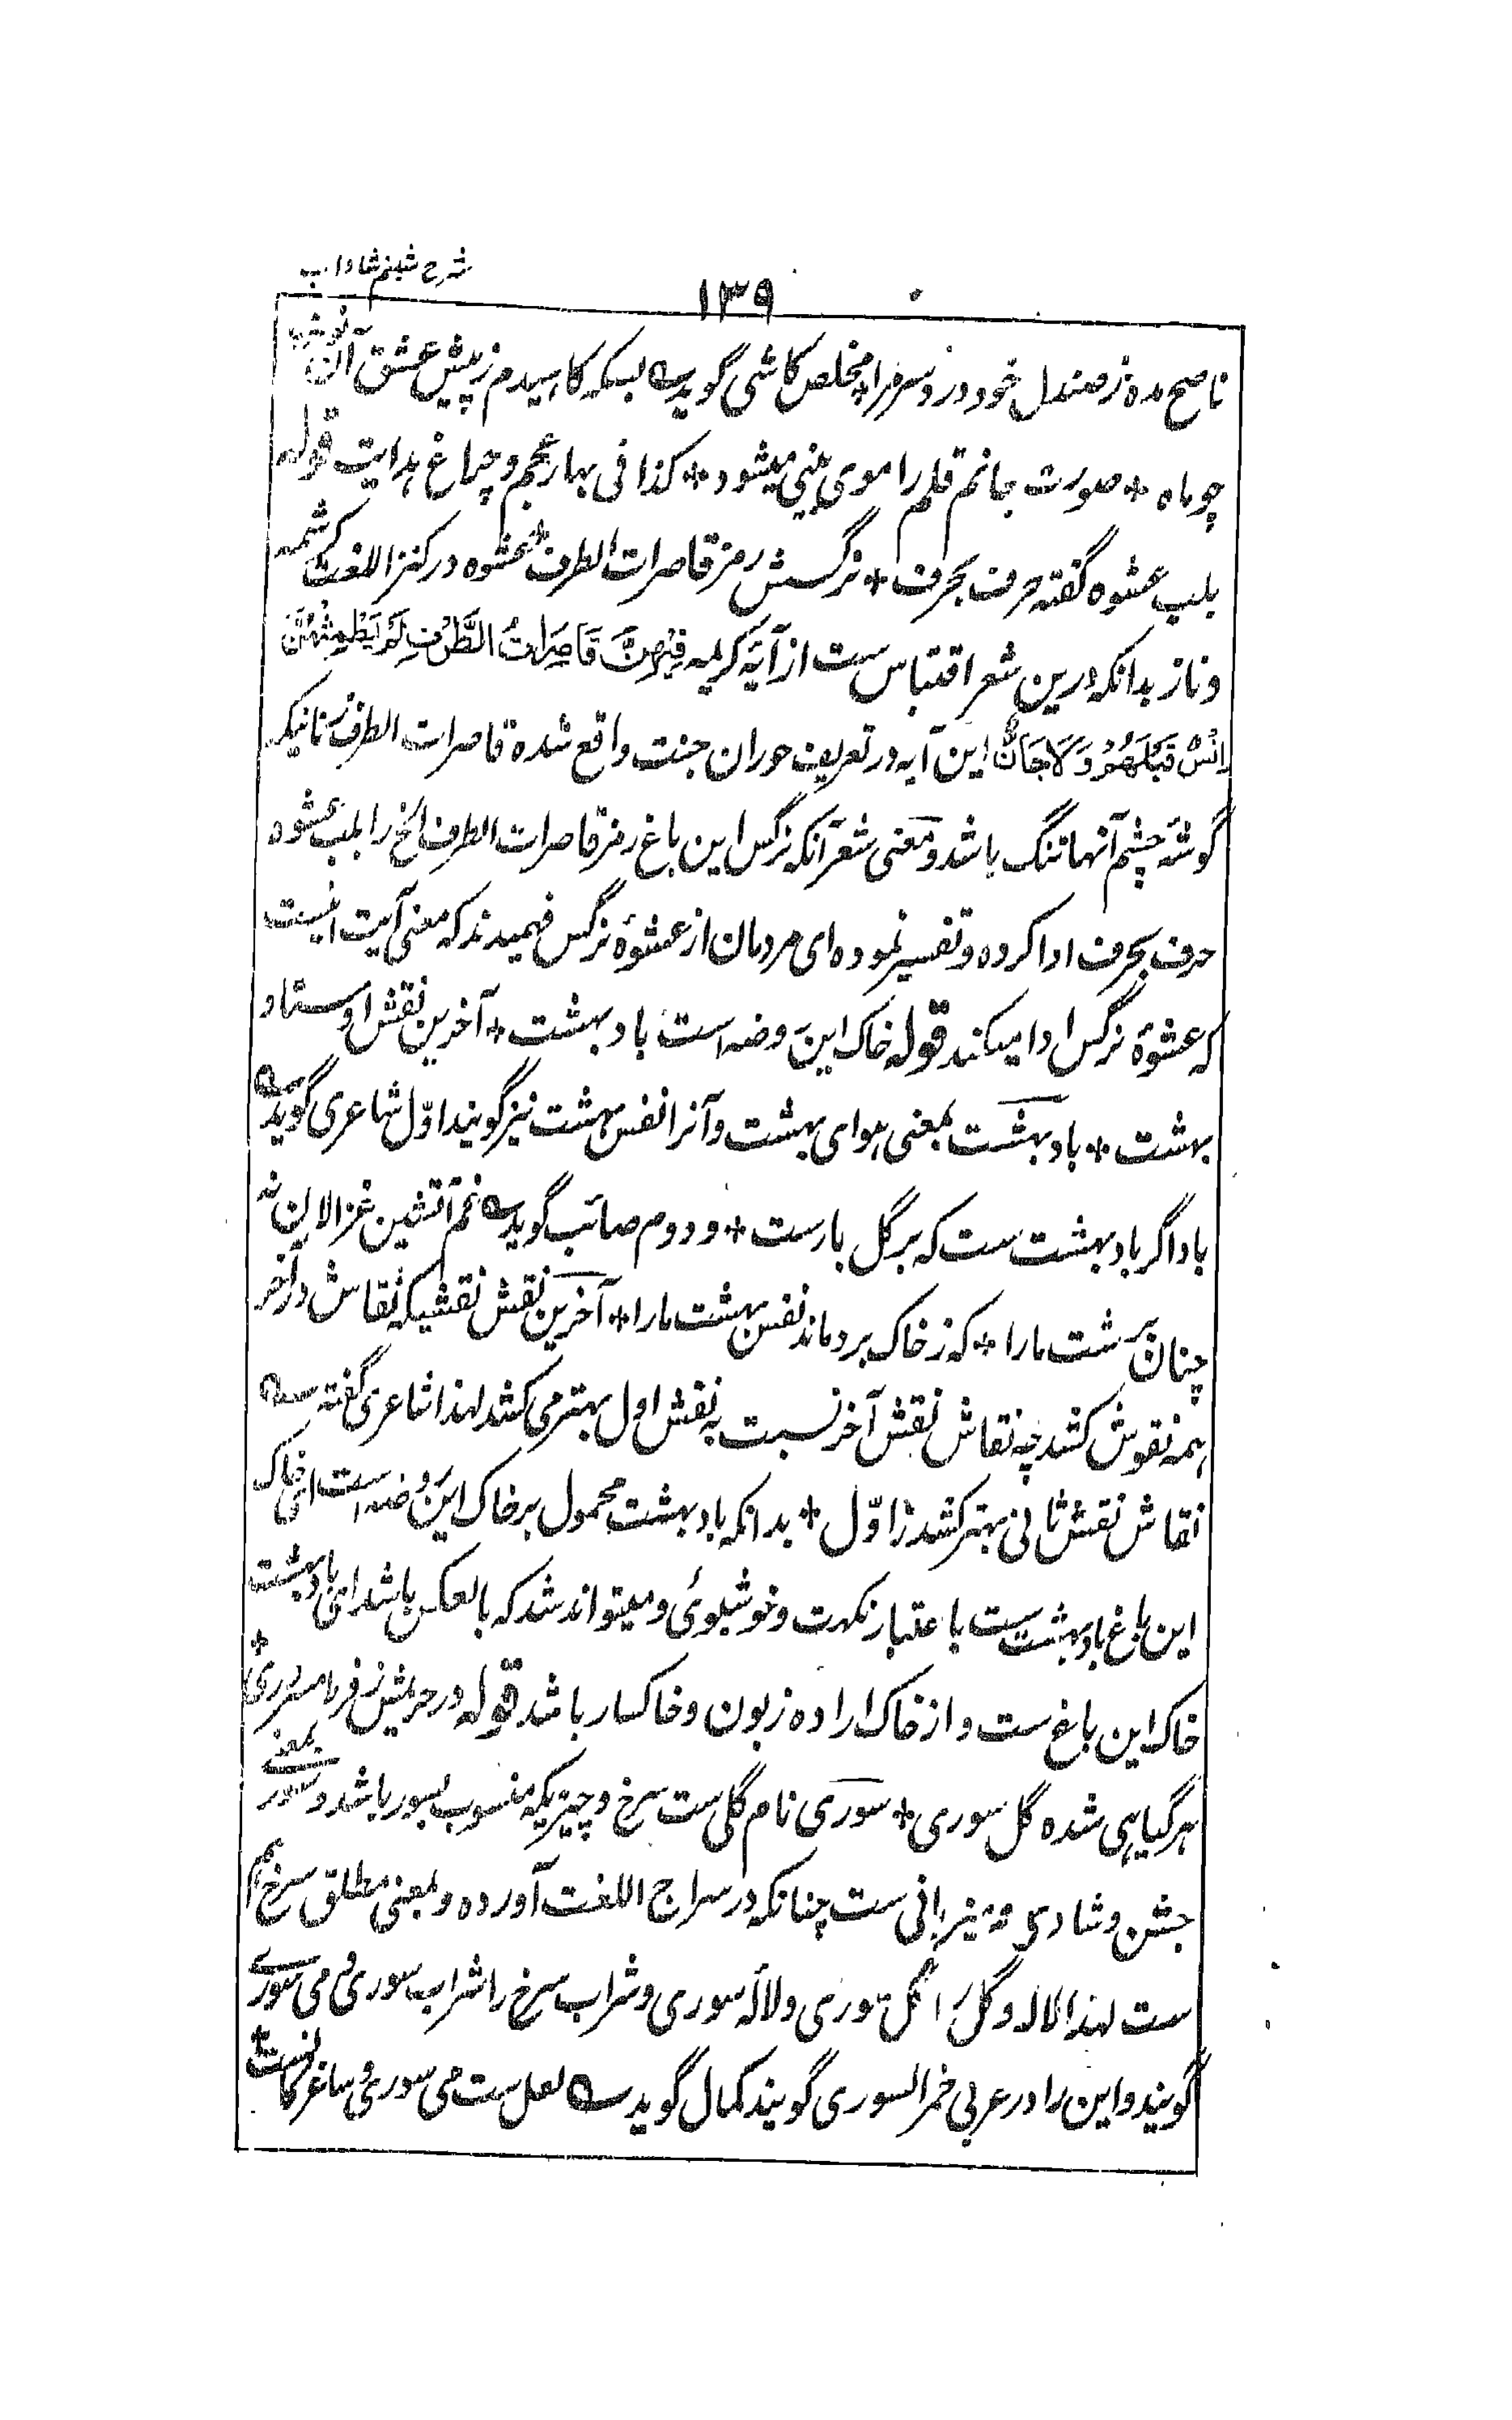 شرح شبنم شاداب
۱۳۹
ناصح مده ز صندل خود درد سر مرا٭ مخلص کاشی گوید ؎ بسکه کاهیدم ز پیش عشق آن
چو ماه ٭ صورت جانم قلم را موی بینی میشود ٭ کذا فی بهار عجم و چراغ هدایت قوله
بلب عشوه گفته حرف بحرف ٭ نرگسش رمز قاصرات الطرف ٭ عشوه در کنز اللغت کرشمه
و ناز بدانکه درین شعر اقتباس ست از آیهٔ کریمه فِیْهِنَّ قَاصِرَاتُ الطَّرْفِ لَمْ یَطْمِثْهُنَّ
اِنْسٌ قَبْلَهُمْ وَلَا جَانٌّ این آیه در تعریف حوران جنت واقع شده قاصرات الطرف زنانیکه
گوشهٔ چشم آنها تنگ باشد و معنی شعر آنکه نرگس این باغ رمز قاصرات الطرف الخ را بلب عشوه
حرف بحرف ادا کرده و تفسیر نموده ای مردمان از عشوهٔ نرگس فهمیدند که معنی آیت اینست
که عشوهٔ نرگس ادا میکند قوله خاک این روضه است باد بهشت ٭ آخرین نقش اوستاد
بهشت ٭ باد بهشت بمعنی هوای بهشت و آنرا نفس بهشت نیز گویند اوّل شاعری گوید ؎
باد اگر باد بهشت ست که بر گل بارست ٭ و دوم صائب گوید ؎ غم آتشین غزالان نه
چنان برشت ما را ٭ که ز خاک بر دماند نفس بهشت ما را ٭ آخرین نقش نقشیکه نقاش در آخر
همه نقوش کشد چه نقاش نقش آخر نسبت به نقش اول بهتر می کشد لهذا شاعری گفته ؎
نقاش نقش ثانی بهتر کشد ز اوّل ٭ بدانکه باد بهشت محمول بر خاک این روضه است ای خاک
این باغ باد بهشت ست باعتبار نکهت و خوشبوئی و میتواند شد که بالعکس باشد ای باد بهشت
خاک این باغ ست و از خاک اراده زبون و خاکسار باشد قوله در حریمش ز فر
هر گیاهی شده گل سوری ٭ سوری نام گلی ست سرخ و چیزیکه منسوب بسور باشد و سور بمعنی
جشن و شادی و نیز بافی ست چنانکه در سراج اللغت آورده و بمعنی مطلق سرخ هم
ست لهذا لاله و گل را گل سوری و لالهٔ سوری و شراب سرخ را شراب سوری و می سوری
گویند و این را در عربی خمر السوری گویند کمال گوید ؎ لعل ست می سوری و ساغر کانست